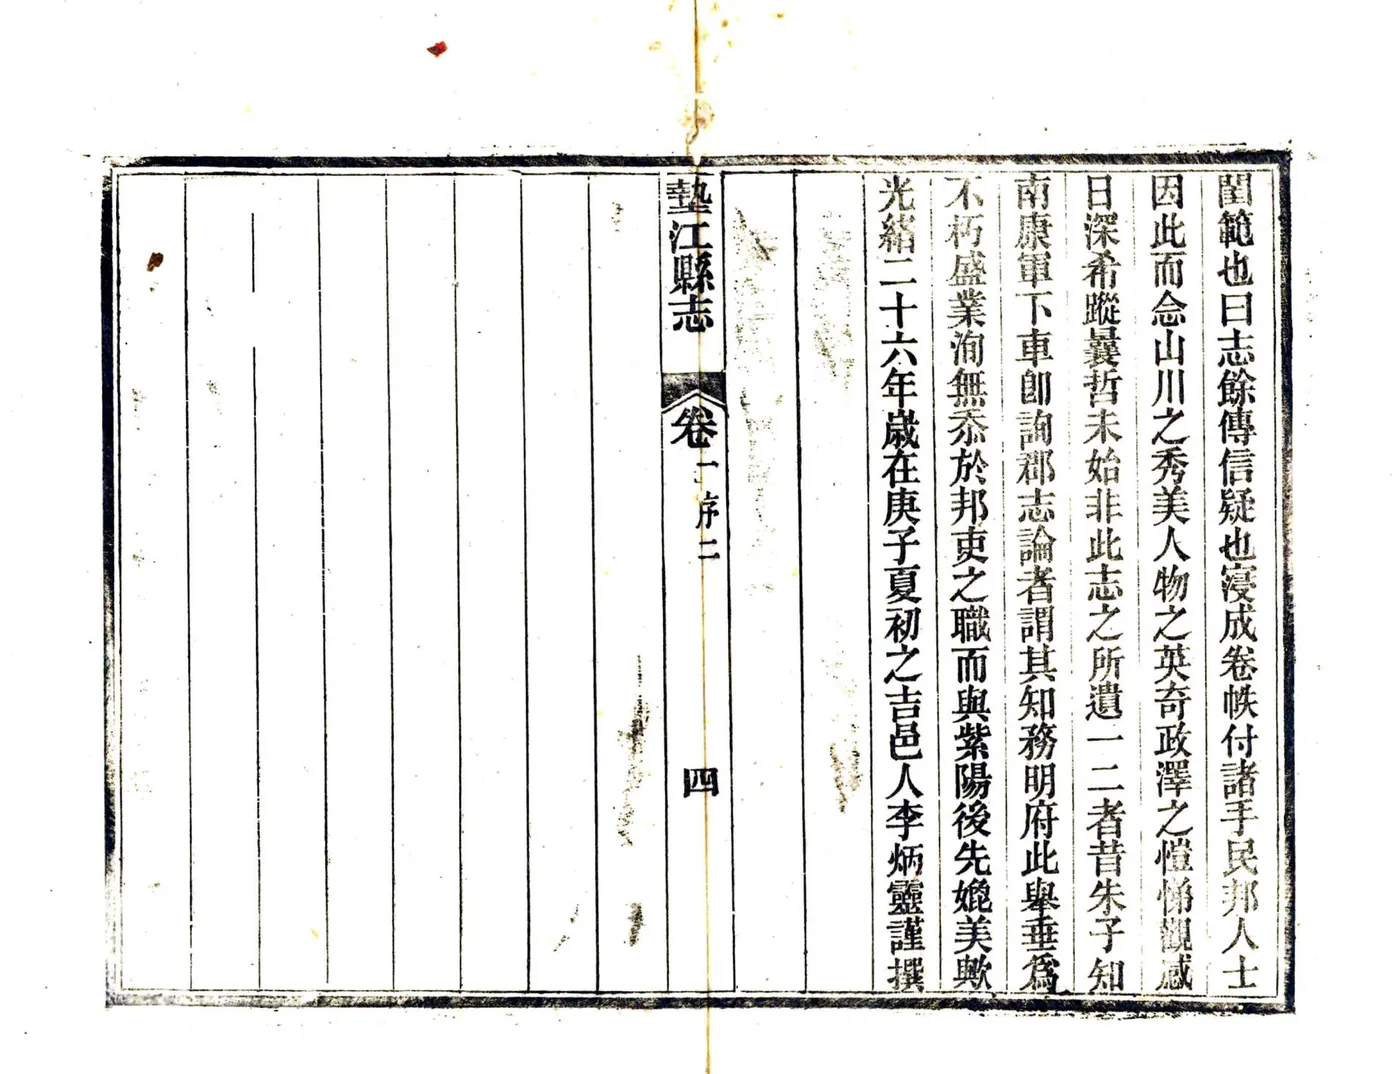 閨範也曰志餘傳信疑也寖成卷帙付諸手民邦人士
因此而念山川之秀美人物之英奇政澤之愷悌觀感
日深希蹤曩哲未始非此志之所遺一二者昔朱子知
南康軍下車卽詢郡志論者謂其知務明府此舉垂爲
不朽盛業洵無忝於邦吏之職而與紫陽後先媲美歟
光緒二十六年歲在庚子夏初之吉邑人李炳靈謹撰
墊江縣志
卷
序二
四